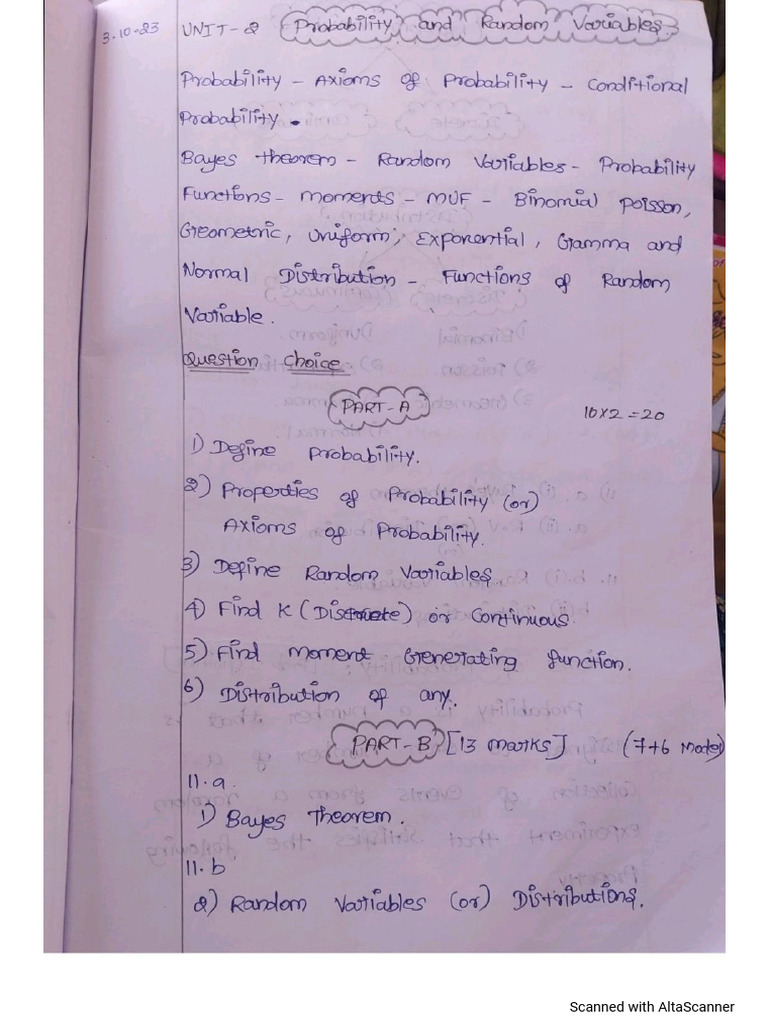 3.10.23 UNIT-2 Probability and Random Variables.
Probability - Axioms of Probability - Conditional
Probability.
Bayes theorem - Random Variables - Probability
Functions - moments - MUF - Binomial Poisson,
Geometric, Uniform, Exponential, Gamma and
Normal Distribution - Functions of Random
Variable.
Question Choice
PART-A 10×2=20
1) Define Probability.
2) Properties of Probability (or)
Axioms of Probability.
3) Define Random Variables
4) Find K (Discrete) or Continuous
5) Find Moment Generating function.
6) Distribution of any.
PART-B [13 marks] (7+6
11.a.
1) Bayes Theorem.
11.b
2) Random Variables (or) Distributions.
Scanned with AltaScanner